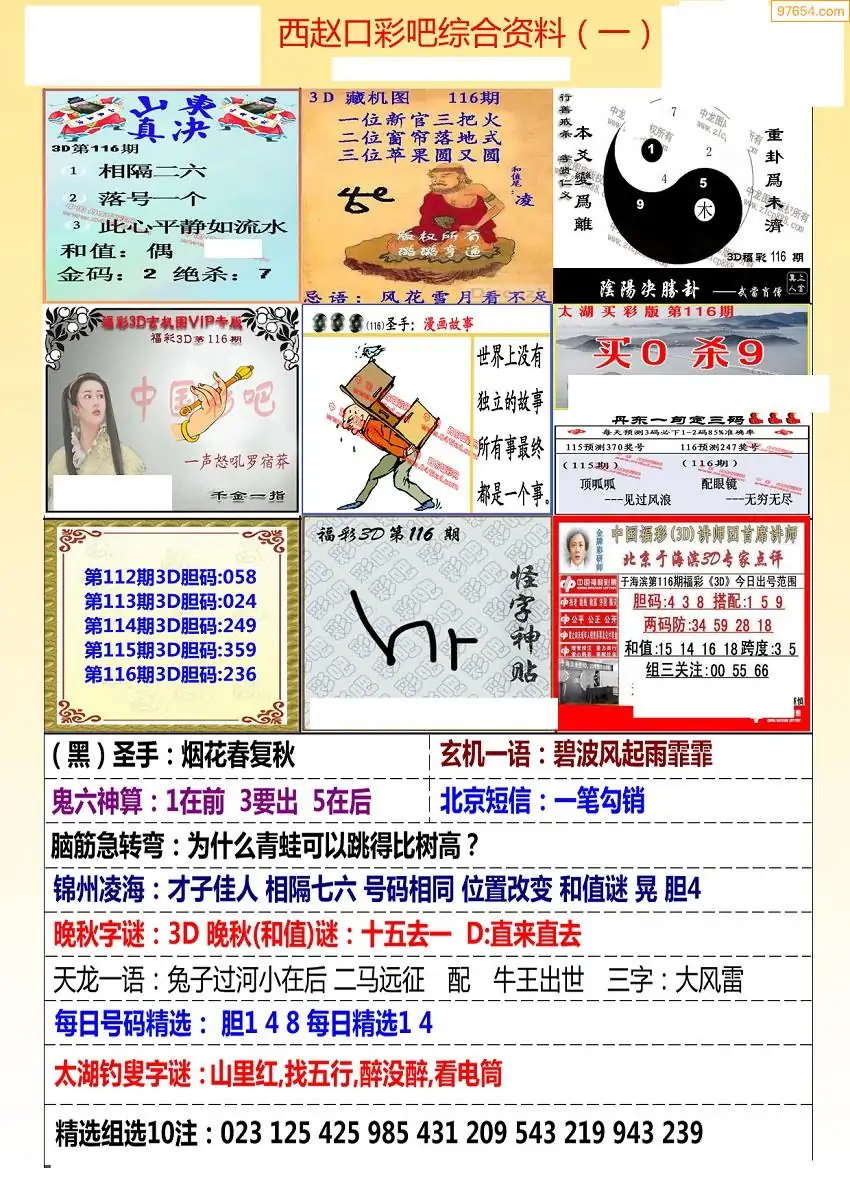 97654.com
西赵口彩吧综合资料（一）
山東
真决
3D第116期
1 相隔二六
2 落号一个
3 此心平静如流水
和值：偶
金码：2 绝杀：7
3D 藏机图 116期
一位新官三把火
二位窗帘落地式
三位苹果圆又圆
和值尾：
凌
版权所有
忌语：风花雪月看不足
行善戒杀
本爻變爲離
7
1
2
4
5
9
木
重卦爲未濟
3D福彩 116 期
陰陽決勝卦 ——武當肖僧
福彩3D玄机图VIP专版
福彩3D第116期
中国彩吧
一声怒吼罗宿莽
千金一指
(116)圣手：漫画故事
世界上没有
独立的故事
所有事最终
都是一个事。
太湖买彩版 第116期
买0 杀9
丹东一句定三码
每天预测3码必下1-2码85%准确率
115预测370奖号 116预测247奖号
(115期) (116期)
顶呱呱 配眼镜
---见过风浪 ---无穷无尽
第112期3D胆码:058
第113期3D胆码:024
第114期3D胆码:249
第115期3D胆码:359
第116期3D胆码:236
福彩3D第116 期
怪字神贴
金牌彩研师
中国福彩(3D)讲师团首席讲师
北京于海滨3D专家点评
中国福利彩票
于海滨第116期福彩《3D》今日出号范围
胆码:4 3 8 搭配:1 5 9
两码防:34 59 28 18
和值:15 14 16 18跨度:3 5
组三关注:00 55 66
公平 公正 公开
(黑)圣手：烟花春复秋
玄机一语：碧波风起雨霏霏
鬼六神算：1在前 3要出 5在后
北京短信：一笔勾销
脑筋急转弯：为什么青蛙可以跳得比树高？
锦州凌海：才子佳人 相隔七六 号码相同 位置改变 和值谜 晃 胆4
晚秋字谜：3D 晚秋(和值)谜：十五去一 D:直来直去
天龙一语：兔子过河小在后 二马远征 配 牛王出世 三字：大风雷
每日号码精选： 胆1 4 8 每日精选1 4
太湖钓叟字谜：山里红,找五行,醉没醉,看电筒
精选组选10注：023 125 425 985 431 209 543 219 943 239